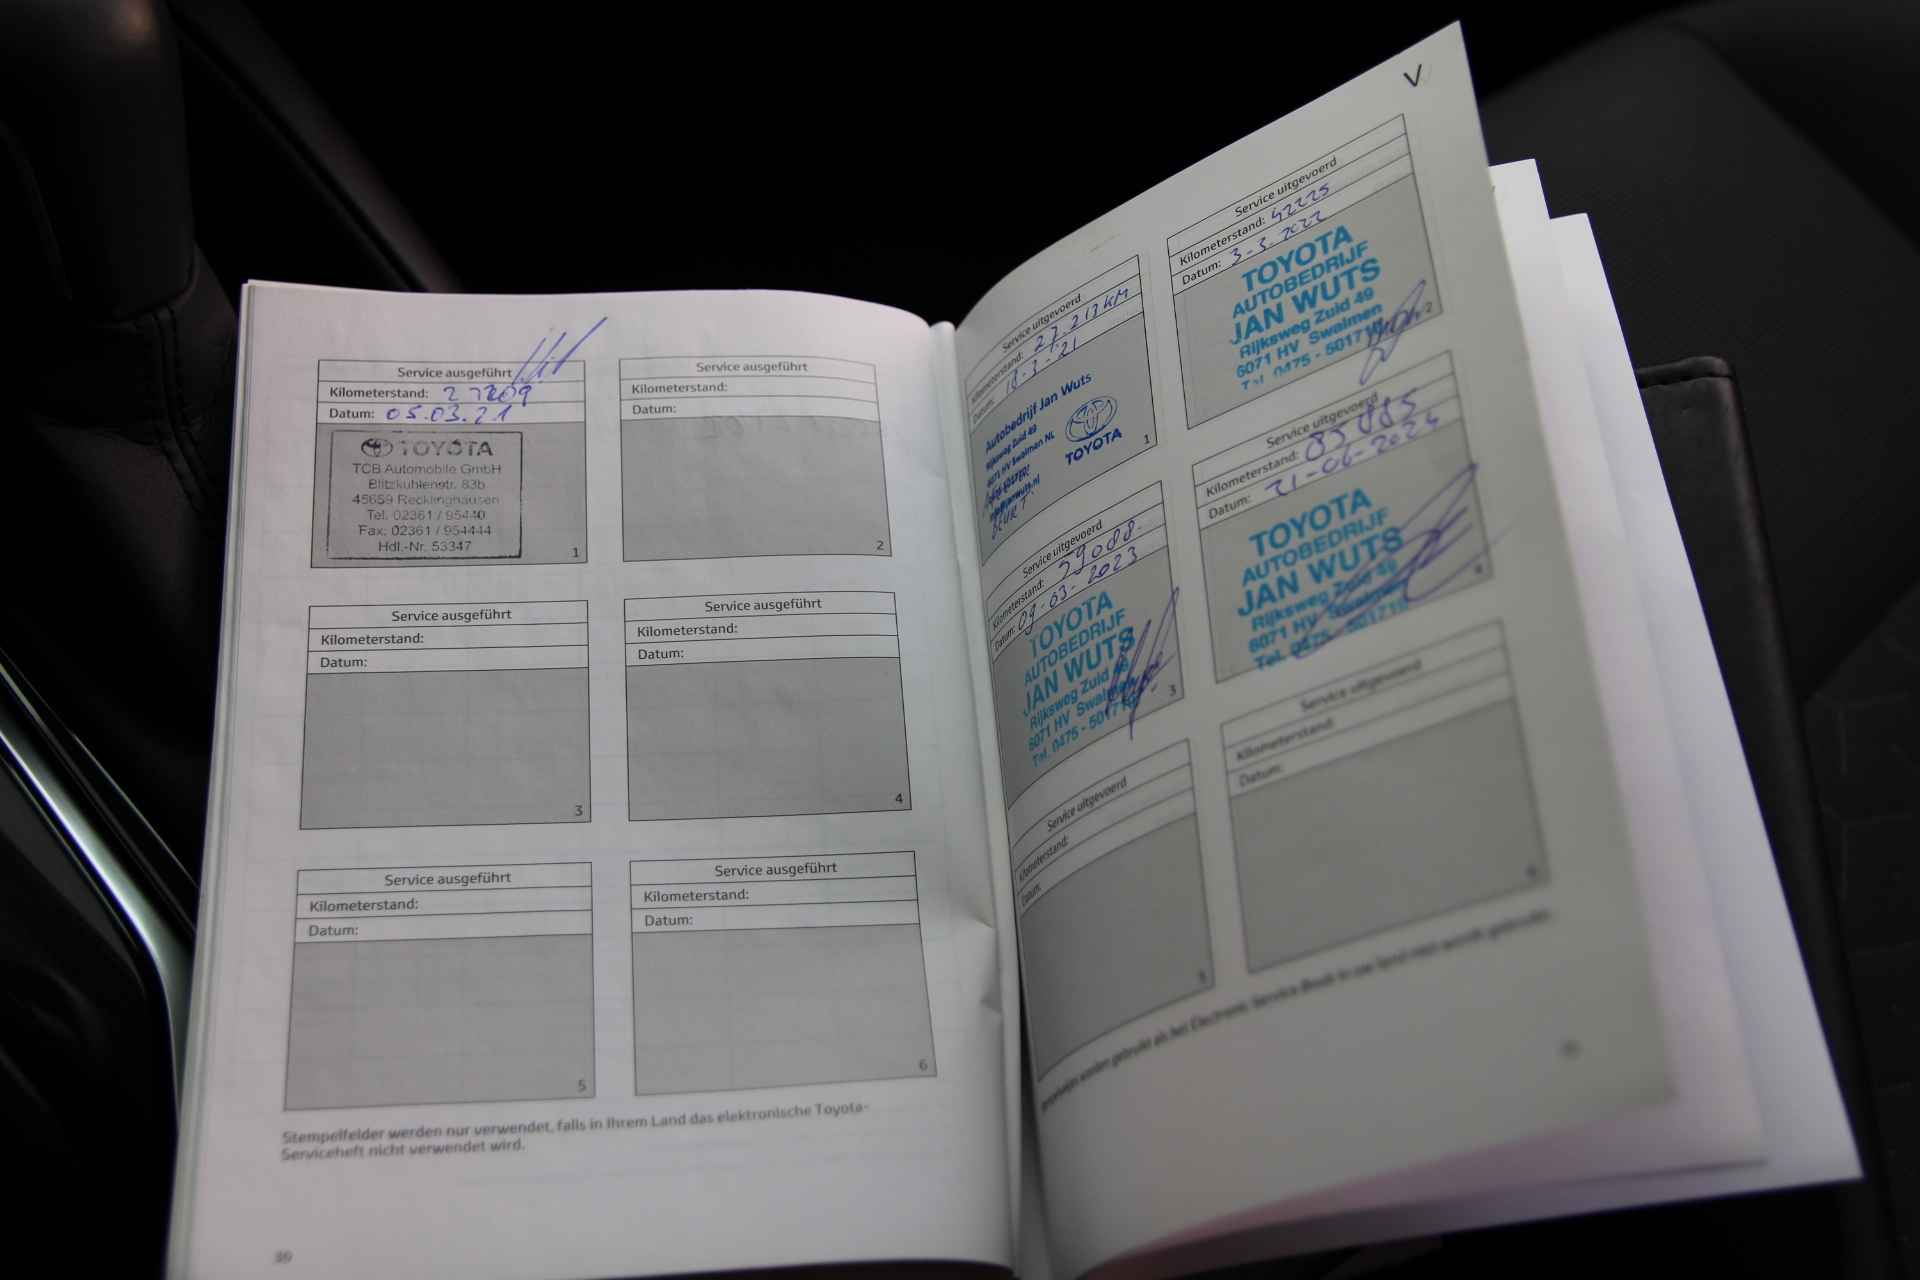 Service ausgeführt
Kilometerstand: 27209
Datum: 05.03.21
TOYOTA
TCB Automobile GmbH
Blitzkuhlenstr. 83b
45659 Recklinghausen
Tel. 02361 / 95440
Fax: 02361 / 954444
Hdl.-Nr. 53347
1
Service ausgeführt
Kilometerstand:
Datum:
2
Service ausgeführt
Kilometerstand:
Datum:
3
Service ausgeführt
Kilometerstand:
Datum:
4
Service ausgeführt
Kilometerstand:
Datum:
5
Service ausgeführt
Kilometerstand:
Datum:
6
Stempelfelder werden nur verwendet, falls in Ihrem Land das elektronische Toyota-
Serviceheft nicht verwendet wird.
30
V
Service uitgevoerd
Kilometerstand: 27.213 KM
Datum: 18-3-21
Autobedrijf Jan Wuts
Rijksweg Zuid 49
6071 HV Swalmen NL
TOYOTA
1
Service uitgevoerd
Kilometerstand: 42225
Datum: 3-3-2022
TOYOTA
AUTOBEDRIJF
JAN WUTS
Rijksweg Zuid 49
6071 HV Swalmen
Tel. 0475 - 501710
2
Service uitgevoerd
Kilometerstand: 59088
Datum: 09-03-2023
TOYOTA
AUTOBEDRIJF
JAN WUTS
Rijksweg Zuid 49
6071 HV Swalmen
Tel. 0475 - 501710
3
Service uitgevoerd
Kilometerstand:
Datum: 21-06-2024
TOYOTA
AUTOBEDRIJF
JAN WUTS
Rijksweg Zuid 49
6071 HV Swalmen
Tel. 0475 - 501710
4
Service uitgevoerd
Kilometerstand:
Datum:
5
Service uitgevoerd
Kilometerstand:
Datum:
6
worden gebruikt als het Electronic Service Book in uw land niet wordt gebruikt.